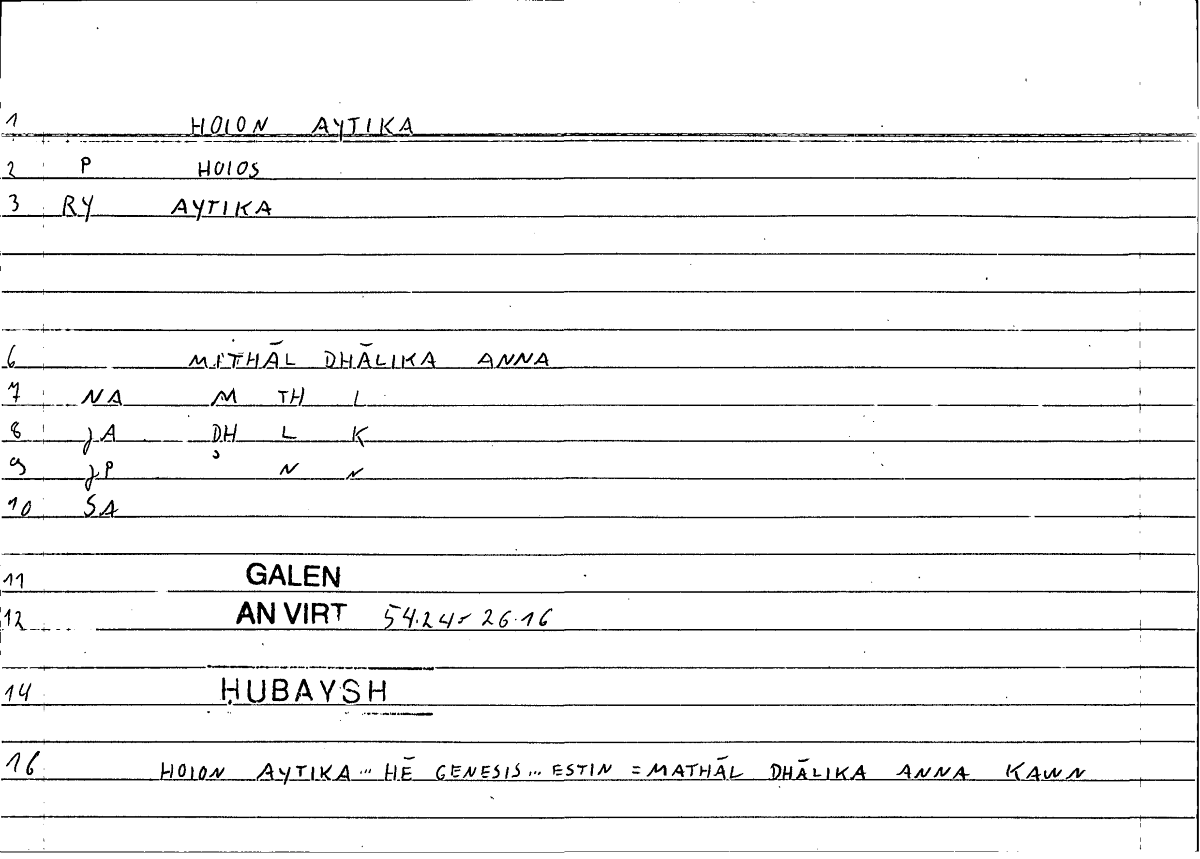 1 HOION AYTIKA
2 P HOIOS
3 RY AYTIKA
6 MITHĀL DHĀLIKA ANNA
7 NA M TH L
8 JA ḌH L K
9 JP N N
10 SA
11 GALEN
12 AN VIRT 54.24= 26.16
14 ḤUBAYSH
16 HOION AYTIKA ... HĒ GENESIS ... ESTIN = MATHĀL DHĀLIKA ANNA KAWN